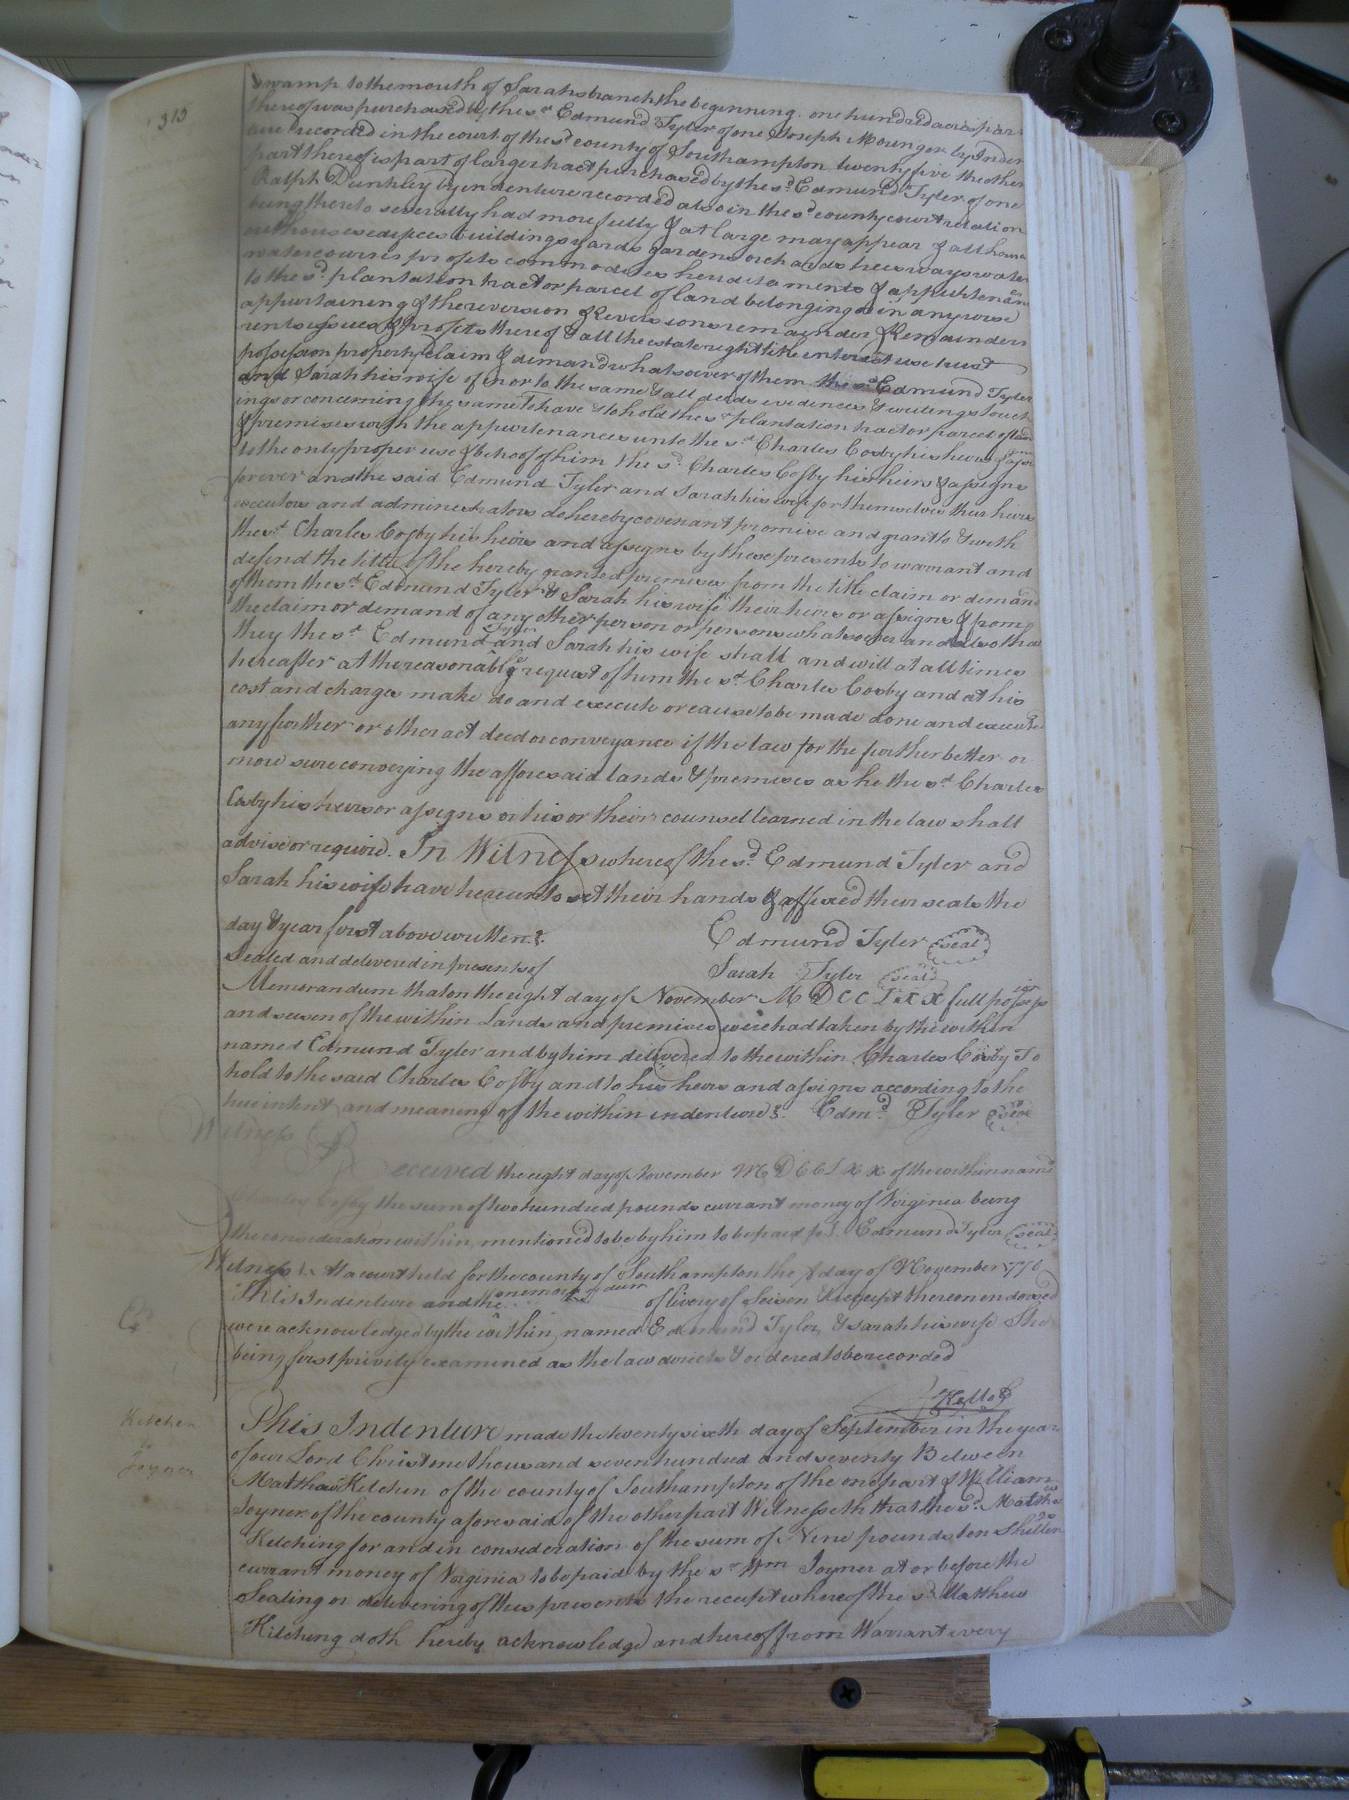 315
Swamp to the mouth of Sarahs branch the beginning. one hundred acres par
thereof was purchased by the sd Edmund Tyler of one Joseph Mounger by Inden
are recorded in the court of the sd county of Southampton twenty five the other
part thereof is part of larger tract purchased by the sd Edmund Tyler of one
Ralph Dunkley by indenture recorded also in the sd county court relation
being thereto severally had more fully & at large may appear & all hous
outhouses edifices buildings yards gardens orchards trees ways water
watercourses profits commodities heriditaments & appurtenan
to the sd plantation tract or parcel of land belonging or in any wise
appurtaining & the reversion & Reversions remainder & Remainders
rents issues & profits thereof & all the estate right title interest use trust
possession property claim & demand whatsoever of them the sd Edmund Tyler
and Sarah his wife of in or to the same & all deeds evidences & writings touch
ings or concerning the same To have & to hold the sd plantation tract or parcel of lan
& premises with the appurtenances unto the sd Charles Cosby his heirs &
to the only proper use & behoof of him the sd Charles Cosby his heirs & assigns
forever and the said Edmund Tyler and Sarah his wife for themselves their heirs
executors and administrators do hereby covenant promise and grant to & with
the sd Charles Cosby his heirs and assigns by these presents to warrant and
defend the title of the hereby granted premises from the title claim or deman
of them the sd Edmund Tyler & Sarah his wife their heirs or assigns & from
the claim or demand of any other person or persons whatsoever and also tha
they the sd Edmund Tyler and Sarah his wife shall and will at all times
hereafter at the reasonable request of him the sd Charles Cosby and at his
cost and charges make do and execute or cause to be made done and execute
any further or other act deed or conveyance if the law for the further better or
more sure conveying the afforesaid lands & premises as he the sd Charles
Cosby his heirs or assigns or his or their counsel learned in the law shall
advise or require. In Witness whereof the sd Edmund Tyler and
Sarah his wife have hereunto set their hands & affixed their seals the
day & year first above written.
Edmund Tyler seal
Sealed and delivered in presents of
Sarah Tyler seal
Memorandum that on the eight day of November MDCCLXX full possess ion
and seisen of the within Lands and premises were had taken by the within
named Edmund Tyler and by him delivered to the within Charles Cosby To
hold to the said Charles Cosby and to his heirs and assigns according to the
true intent and meaning of the within indenture. Edmd Tyler
Witness
Received the eight day of November MDCCLXX of the within namd
Charles Cosby the sum of two hundred pounds currant money of Virginia being
the consideration within mentioned to be by him to be paid Edmund Tyler seal
Witness At a court held for the county of Southampton the 8 day of November 1770
This Indenture and the memorandum of livery of Seisen & receipt thereon endorsed
were acknowledged by the within named Edmund Tyler & Sarah his wife She
being first privily examined as the law directs & ordered to be recorded
Kitchen
to
Joyner
This Indenture made the twenty sixth day of September in the year
of our Lord Christ one thousand seven hundred and seventy Between
Mathew Kitchen of the county of Southampton of the one part & William
Joyner of the county aforesaid of the other part Witnesseth that the sd Mathew
Kitching for and in consideration of the sum of Nine pounds ten Shillings
currant money of Virginia to be paid by the sd Wm Joyner at or before the
Sealing or delivering of these presents the receipt whereof the sd Matthew
Kitching doth hereby acknowledge and hereof from Warrant every